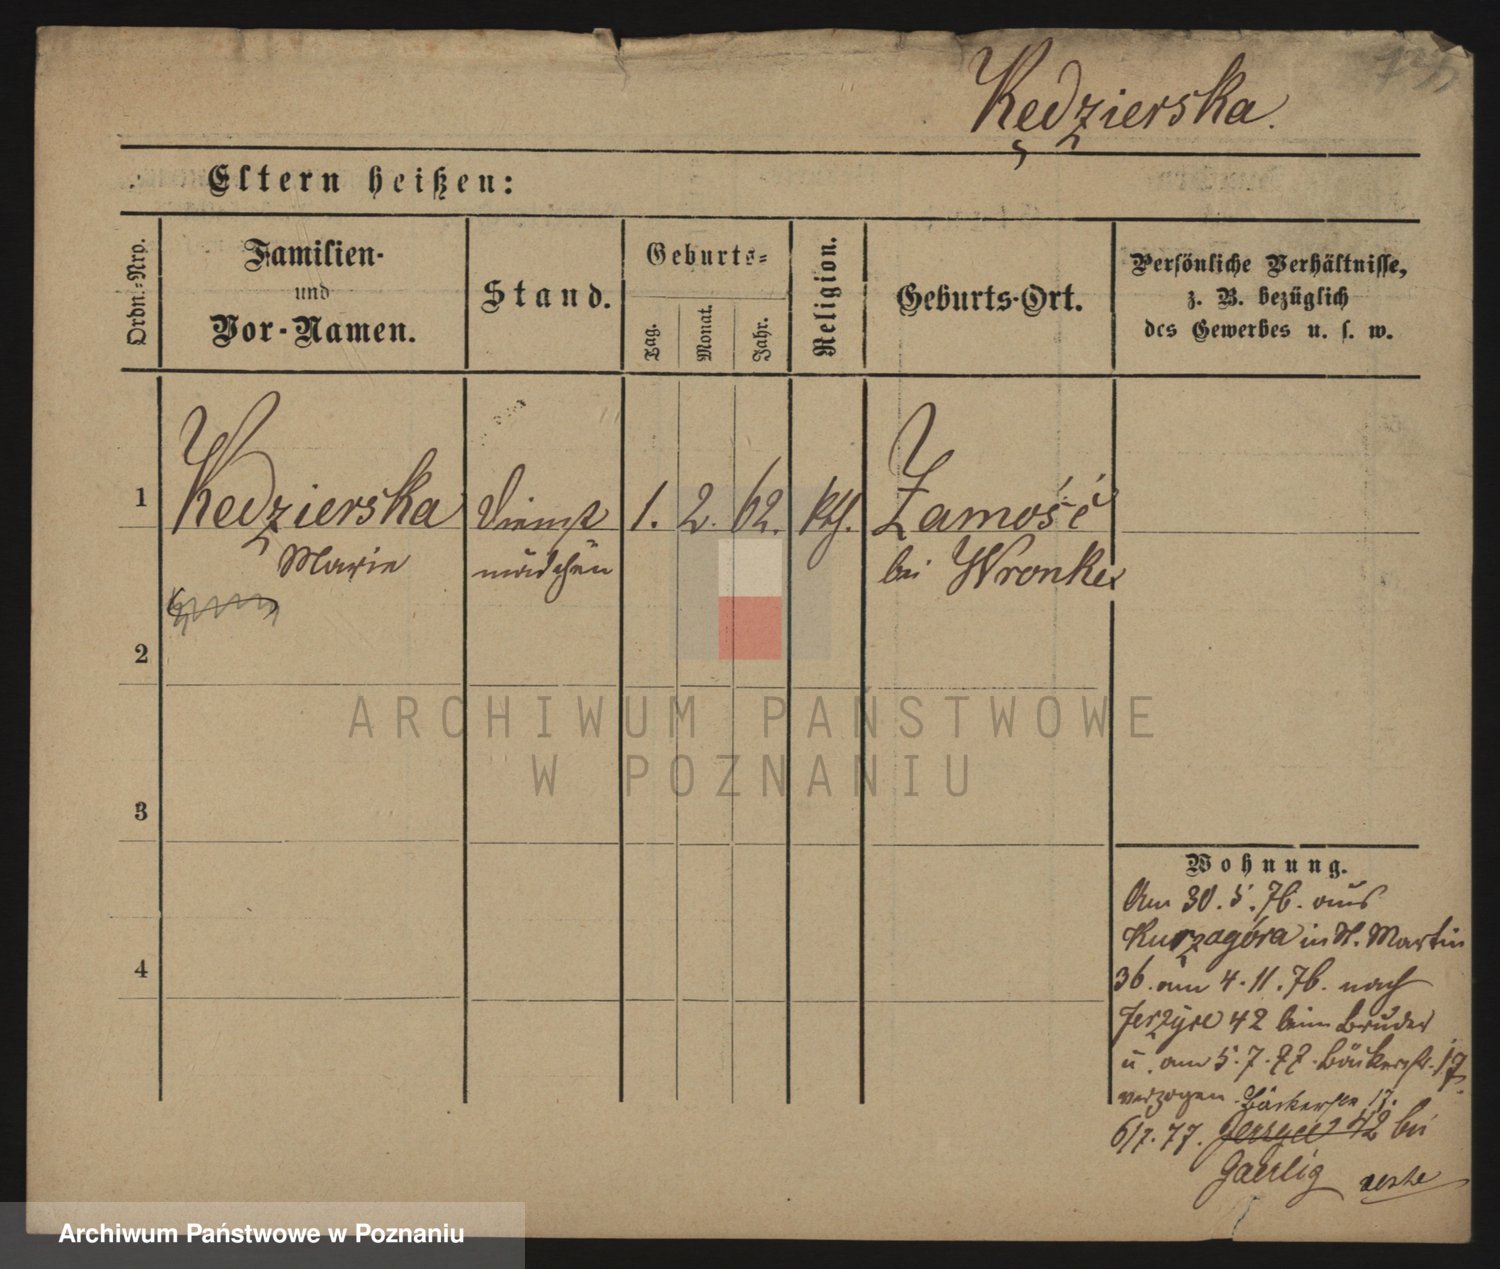 Kędzierska.
Eltern heißen:
Ordn.-Nro.
Familien-
und
Vor-Namen.
Stand.
Geburts-
Tag.
Monat.
Jahr.
Religion.
Geburts-Ort.
Persönliche Verhältnisse,
z. B. bezüglich
des Gewerbes u. s. w.
1
Kedzierska
Marie
Dienst
mädchen
1. 2. 62.
kth.
Zamość
bei Wronke
2
3
4
Wohnung.
Am 30. 5. 76. aus
Kurzagóra in St. Martin
36. am 4. 11. 76. nach
Jerzyce 42 beim Bruder
u. am 5. 7. 77. Bäckerstr. 17
verzogen. Bäckerstr 17.
6/7. 77. Jersyce 42 bei
Gaerlig
ARCHIWUM PAŃSTWOWE
W POZNANIU
Archiwum Państwowe w Poznaniu